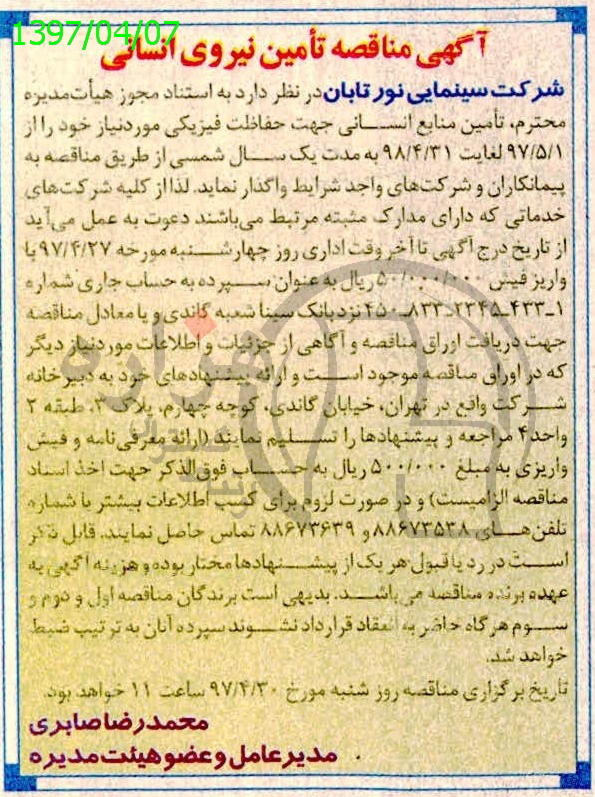 1397/04/07
آگهی مناقصه تأمین نیروی انسانی
شرکت سینمایی نور تابان در نظر دارد به استناد مجوز هیأت‌مدیره
محترم، تأمین منابع انسانی جهت حفاظت فیزیکی موردنیاز خود را از
۹۷/۵/۱ لغایت ۹۸/۴/۳۱ به مدت یک سال شمسی از طریق مناقصه به
پیمانکاران و شرکت‌های واجد شرایط واگذار نماید. لذا از کلیه شرکت‌های
خدماتی که دارای مدارک مثبته مرتبط می‌باشند دعوت به عمل می‌آید
از تاریخ درج آگهی تا آخر وقت اداری روز چهارشنبه مورخه ۹۷/۴/۲۷ با
واریز فیش ۵۰/۰۰۰/۰۰۰ ریال به عنوان سپرده به حساب جاری شماره
۱-۴۳۳-۲۳۴۵-۸۳۳-۴۵۰ نزد بانک سینا شعبه گاندی و یا معادل مناقصه
جهت دریافت اوراق مناقصه و آگاهی از جزئیات و اطلاعات موردنیاز دیگر
که در اوراق مناقصه موجود است و ارائه پیشنهادهای خود به دبیرخانه
شرکت واقع در تهران، خیابان گاندی، کوچه چهارم، پلاک ۳، طبقه ۲
واحد ۴ مراجعه و پیشنهادها را تسلیم نمایند (ارائه معرفی‌نامه و فیش
واریزی به مبلغ ۵۰۰/۰۰۰ ریال به حساب فوق‌الذکر جهت اخذ اسناد
مناقصه الزامیست) و در صورت لزوم برای کسب اطلاعات بیشتر با شماره
تلفن‌های ۸۸۶۷۳۵۳۸ و ۸۸۶۷۳۶۳۹ تماس حاصل نمایند. قابل ذکر
است در رد یا قبول هر یک از پیشنهادها مختار بوده و هزینه آگهی به
عهده برنده مناقصه می‌باشد. بدیهی است برندگان مناقصه اول و دوم و
سوم هرگاه حاضر به انعقاد قرارداد نشوند سپرده آنان به ترتیب ضبط
خواهد شد.
تاریخ برگزاری مناقصه روز شنبه مورخ ۹۷/۴/۳۰ ساعت ۱۱ خواهد بود.
محمدرضا صابری
مدیرعامل و عضو هیئت مدیره